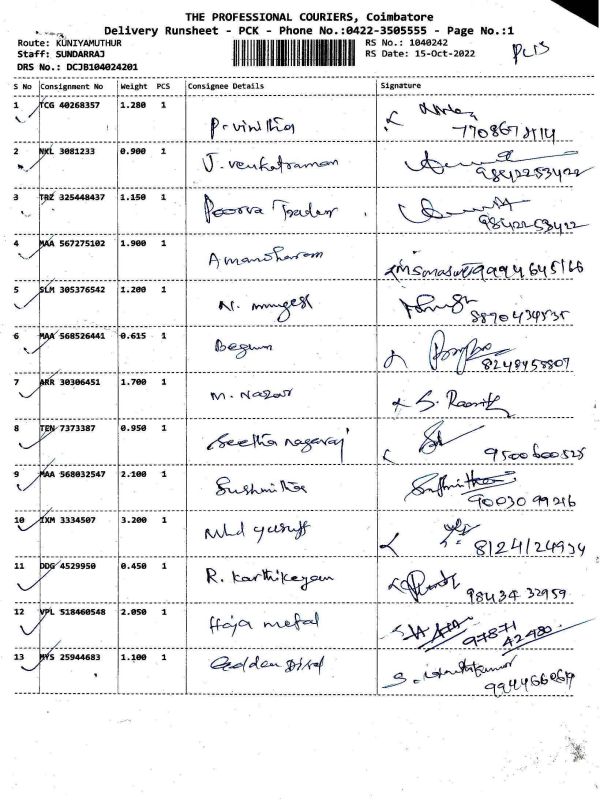 THE PROFESSIONAL COURIERS, Coimbatore
Delivery Runsheet - PCK - Phone No.:0422-3505555 - Page No.:1
Route: KUNIYAMUTHUR
RS No.: 1040242
Staff: SUNDARRAJ
RS Date: 15-Oct-2022
DRS No.: DCJB104024201
S No Consignment No Weight PCS Consignee Details Signature
1 TCG 40268357 1.280 1
P. vinitha
2 NKL 3081233 0.900 1
J. venkatraman 9842253422
3 TRZ 325448437 1.150 1
Poorva Traders 9842253422
4 MAA 567275102 1.900 1
A manoharam 9994645166
5 SLM 305376542 1.200 1
N. murugesh 8870434535
6 MAA 568526441 0.615 1
Begum 8248958807
7 ARR 30306451 1.700 1
M. Nazar
8 TEN 7373387 0.950 1
Seetha nagaraj 9500600525
9 MAA 568032547 2.100 1
Sushmitha 90030 99216
10 IXM 3334507 3.200 1
Mhd yusuff 8124124934
11 DDG 4529950 0.450 1
R. Karthikeyan 98434 32959
12 VPL 518460548 2.050 1
Haja 97871
42480
13 MYS 25944683 1.100 1
9944660619